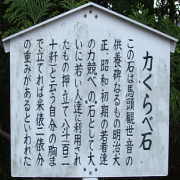 力くらべ石
この石は馬頭観世音の
供養碑なるも明治大
正、昭和初期の若者達
の力競べの石として大
いに若い人達に利用され
たもの押立て八十二貫
十軒と云う自分の胸ま
で立てれば米俵二俵分
の重みがあるといわれた